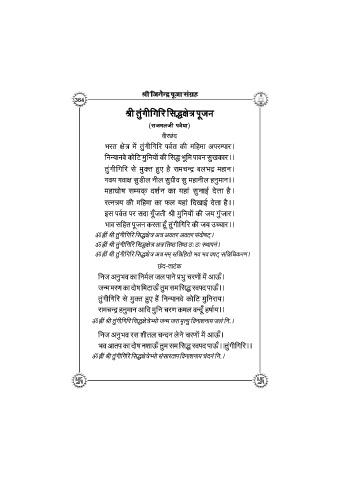 श्री जिनेन्द्र पूजा संग्रह
364
श्री तुंगीगिरि सिद्धक्षेत्र पूजन
(राजमलजी पवैया)
वीरछंद
भरत क्षेत्र में तुंगीगिरि पर्वत की महिमा अपरम्पार।
निन्यानवे कोटि मुनियों की सिद्ध भूमि पावन सुखकार।।
तुंगीगिरि से मुक्त हुए है रामचन्द्र बलभद्र महान।
गवय गवाक्ष सुडील नील सुग्रीव सु महानील हनुमान।।
महाघोष सम्यक् दर्शन का यहां सुनाई देता है।
रत्नत्रय की महिमा का फल यहां दिखाई देता है।।
इस पर्वत पर सदा गूँजती श्री मुनियों की जय गुंजार।
भाव सहित पूजन करता हूँ तुंगीगिरि की जय उच्चार।।
ॐ ह्रीं श्री तुंगीगिरि सिद्धक्षेत्र अत्र अवतर अवतर संवौषट्।
ॐ ह्रीं श्री तुंगीगिरि सिद्धक्षेत्र अत्र तिष्ठ तिष्ठ ठः ठः स्थापनं।
ॐ ह्रीं श्री तुंगीगिरि सिद्धक्षेत्र अत्र मम् सन्निहितो भव भव वषट् सन्निधिकरण।
छंद-ताटंक
निज अनुभव का निर्मल जल पाने प्रभु चरणों में आऊँ।
जन्म मरण का दोष मिटाऊँ तुम सम सिद्ध स्वपद पाऊँ।।
तुंगीगिरि से मुक्त हुए हैं निन्यानवे कोटि मुनिराय।
रामचन्द्र हनुमान आदि मुनि चरण कमल वन्दूँ हर्षाय।।
ॐ ह्रीं श्री तुंगीगिरि सिद्धक्षेत्रेभ्यो जन्म जरा मृत्यु विनाशनाय जलं नि.।
निज अनुभव रस शीतल चन्दन लेने चरणों में आऊँ।
भव आतप का दोष नशाऊँ तुम सम सिद्ध स्वपद पाऊँ।।तुंगीगिरि।।
ॐ ह्रीं श्री तुंगीगिरि सिद्धक्षेत्रेभ्यो संसारताप विनाशनाय चंदनं नि.।